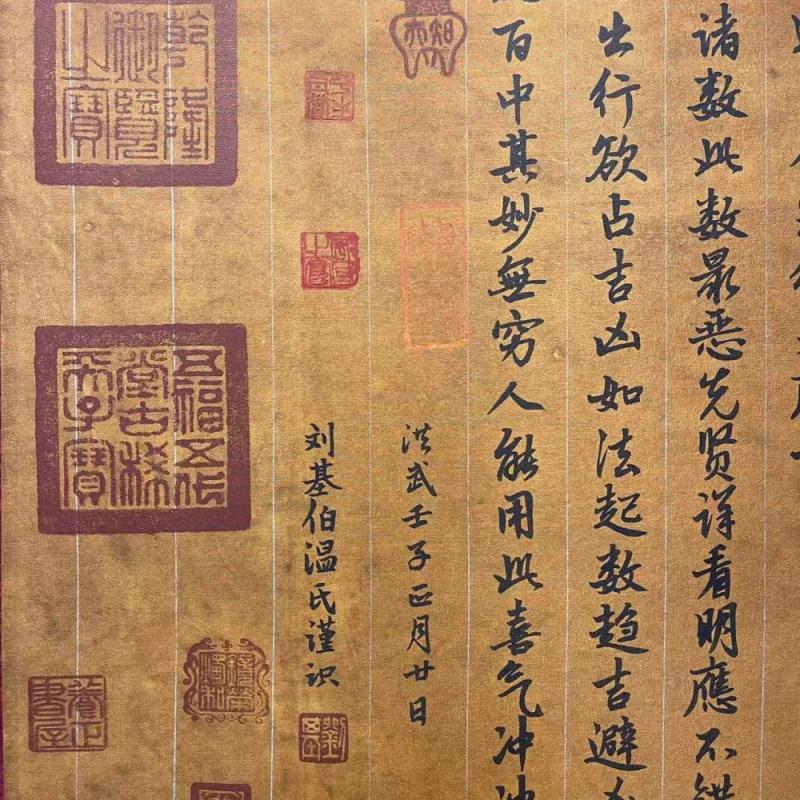 诸数此数最恶先贤详看明應不
出行欲占吉凶如法起数趋吉避
百中其妙無穷人能用此喜气冲冲
洪武壬子正月廿日
刘基伯温氏谨识
乾隆御覽之寶
五福五代堂古稀天子寶
養正書屋
劉基